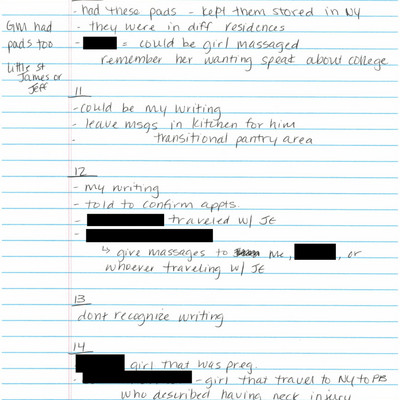 - had these pads - kept them stored in NY
GM had pads too
- they were in diff residences
- = could be girl massaged
remember her wanting speak about college
Little st James or Jeff
11
- could be my writing
- leave msgs in kitchen for him
- transitional pantry area
12
- my writing
- told to confirm appts.
- traveled w/ JE
-
↳ give massages to me, , or
whoever traveling w/ JE
13
dont recognize writing
14
girl that was preg.
- - girl that travel to NY to PB
who described having neck injury